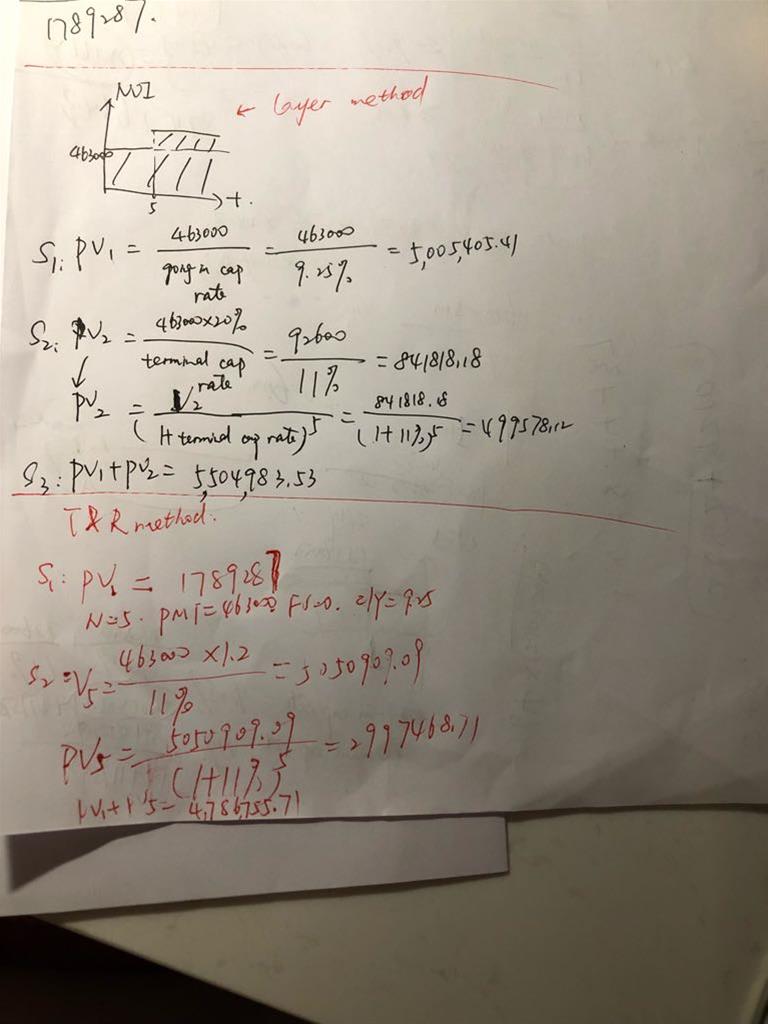 1789287.
NOI
← Layer method
463000
5
t.
S1: PV1 = 463000 / going in cap rate = 463000 / 9.25% = 5,005,405.41
S2: V2 = 463000×20% / terminal cap rate = 92600 / 11% = 841818.18
↓
PV2 = V2 / (1+ terminal cap rate)^5 = 841818.18 / (1+11%)^5 = 499578.12
S3: PV1+PV2 = 5,504,983.53
T&R method.
S1: PV1 = 1789287
N=5. PMT=463000 FV=0. I/Y=9.25
S2: V5 = 463000×1.2 / 11% = 5050909.09
PV5 = 5050909.09 / (1+11%)^5 = 2997468.71
PV1+PV5= 4,786,755.71